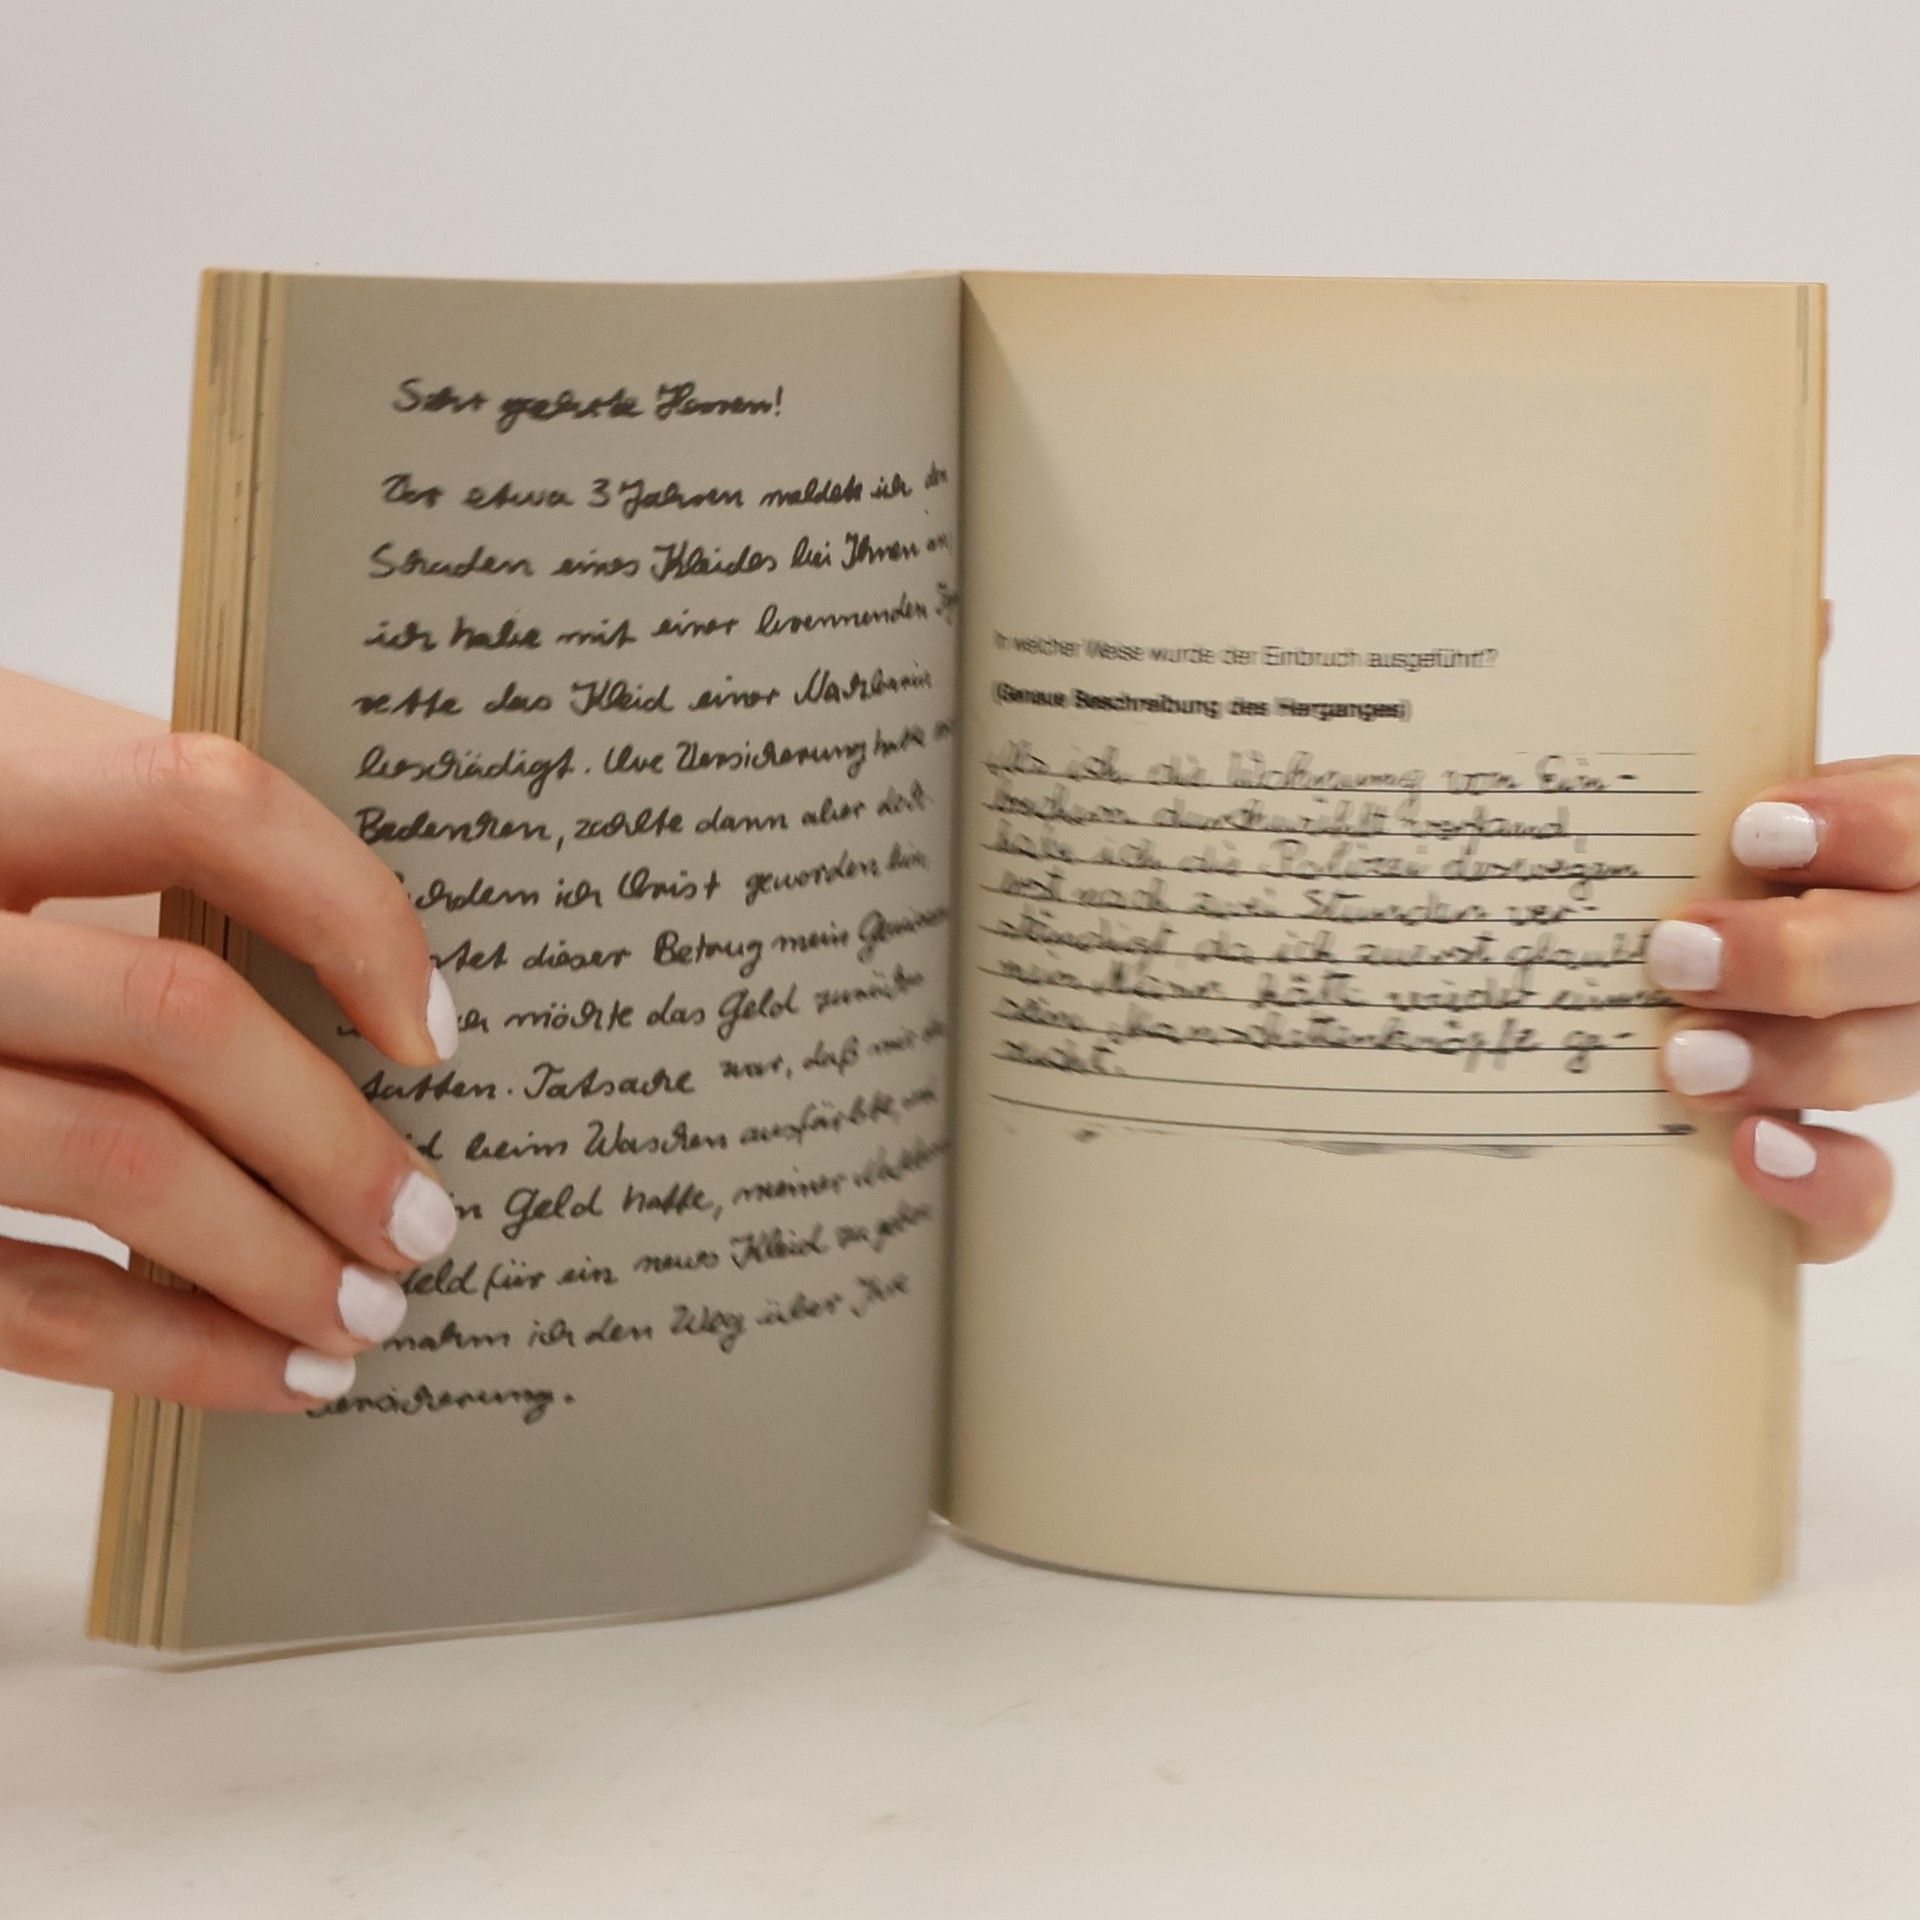 Sehr geehrte Herren!
Vor etwa 3 Jahren meldete ich den
Schaden eines Kleides bei Ihnen an,
ich habe mit einer brennenden
rette das Kleid einer Nachbarin
beschädigt. Ihre Versicherung hatte
Bedenken, zahlte dann aber doch.
ich Christ geworden bin,
dieser Betrug mein Gewissen
möchte das Geld
statten. Tatsache war, daß mir das
beim Waschen ausfärbte,
Geld hatte, meiner
Geld für ein neues Kleid zu geben,
nahm ich den Weg über Ihre
Versicherung.
In welcher Weise wurde der Einbruch ausgeführt?
(Genaue Beschreibung des Herganges)
Als ich die Wohnung von Ein-
brechern durchwühlt vorfand,
habe ich die Polizei deswegen
erst nach zwei Stunden ver-
ständigt, da ich zuerst glaubte
mein Mann hätte wieder einmal
seine Manschettenknöpfe ge-
sucht.